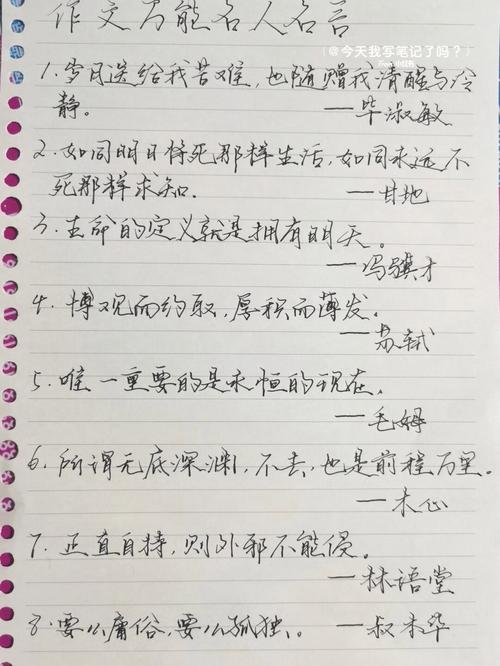 作文万能名人名言
@今天我写笔记了吗?
1.岁月送给我苦难,也随赠我清醒与冷
静。
——毕淑敏
2.如同明日将死那样生活,如同永远不
死那样求知.
——甘地
3.生命的定义就是拥有明天。
——冯骥才
4.博观而约取,厚积而薄发。
——苏轼
5.唯一重要的是永恒的现在。
——毛姆
6.所谓无底深渊,下去,也是前程万里。
——木心
7.正直自持,则外邪不能侵。
——林语堂
8.要么庸俗,要么孤独。——叔本华